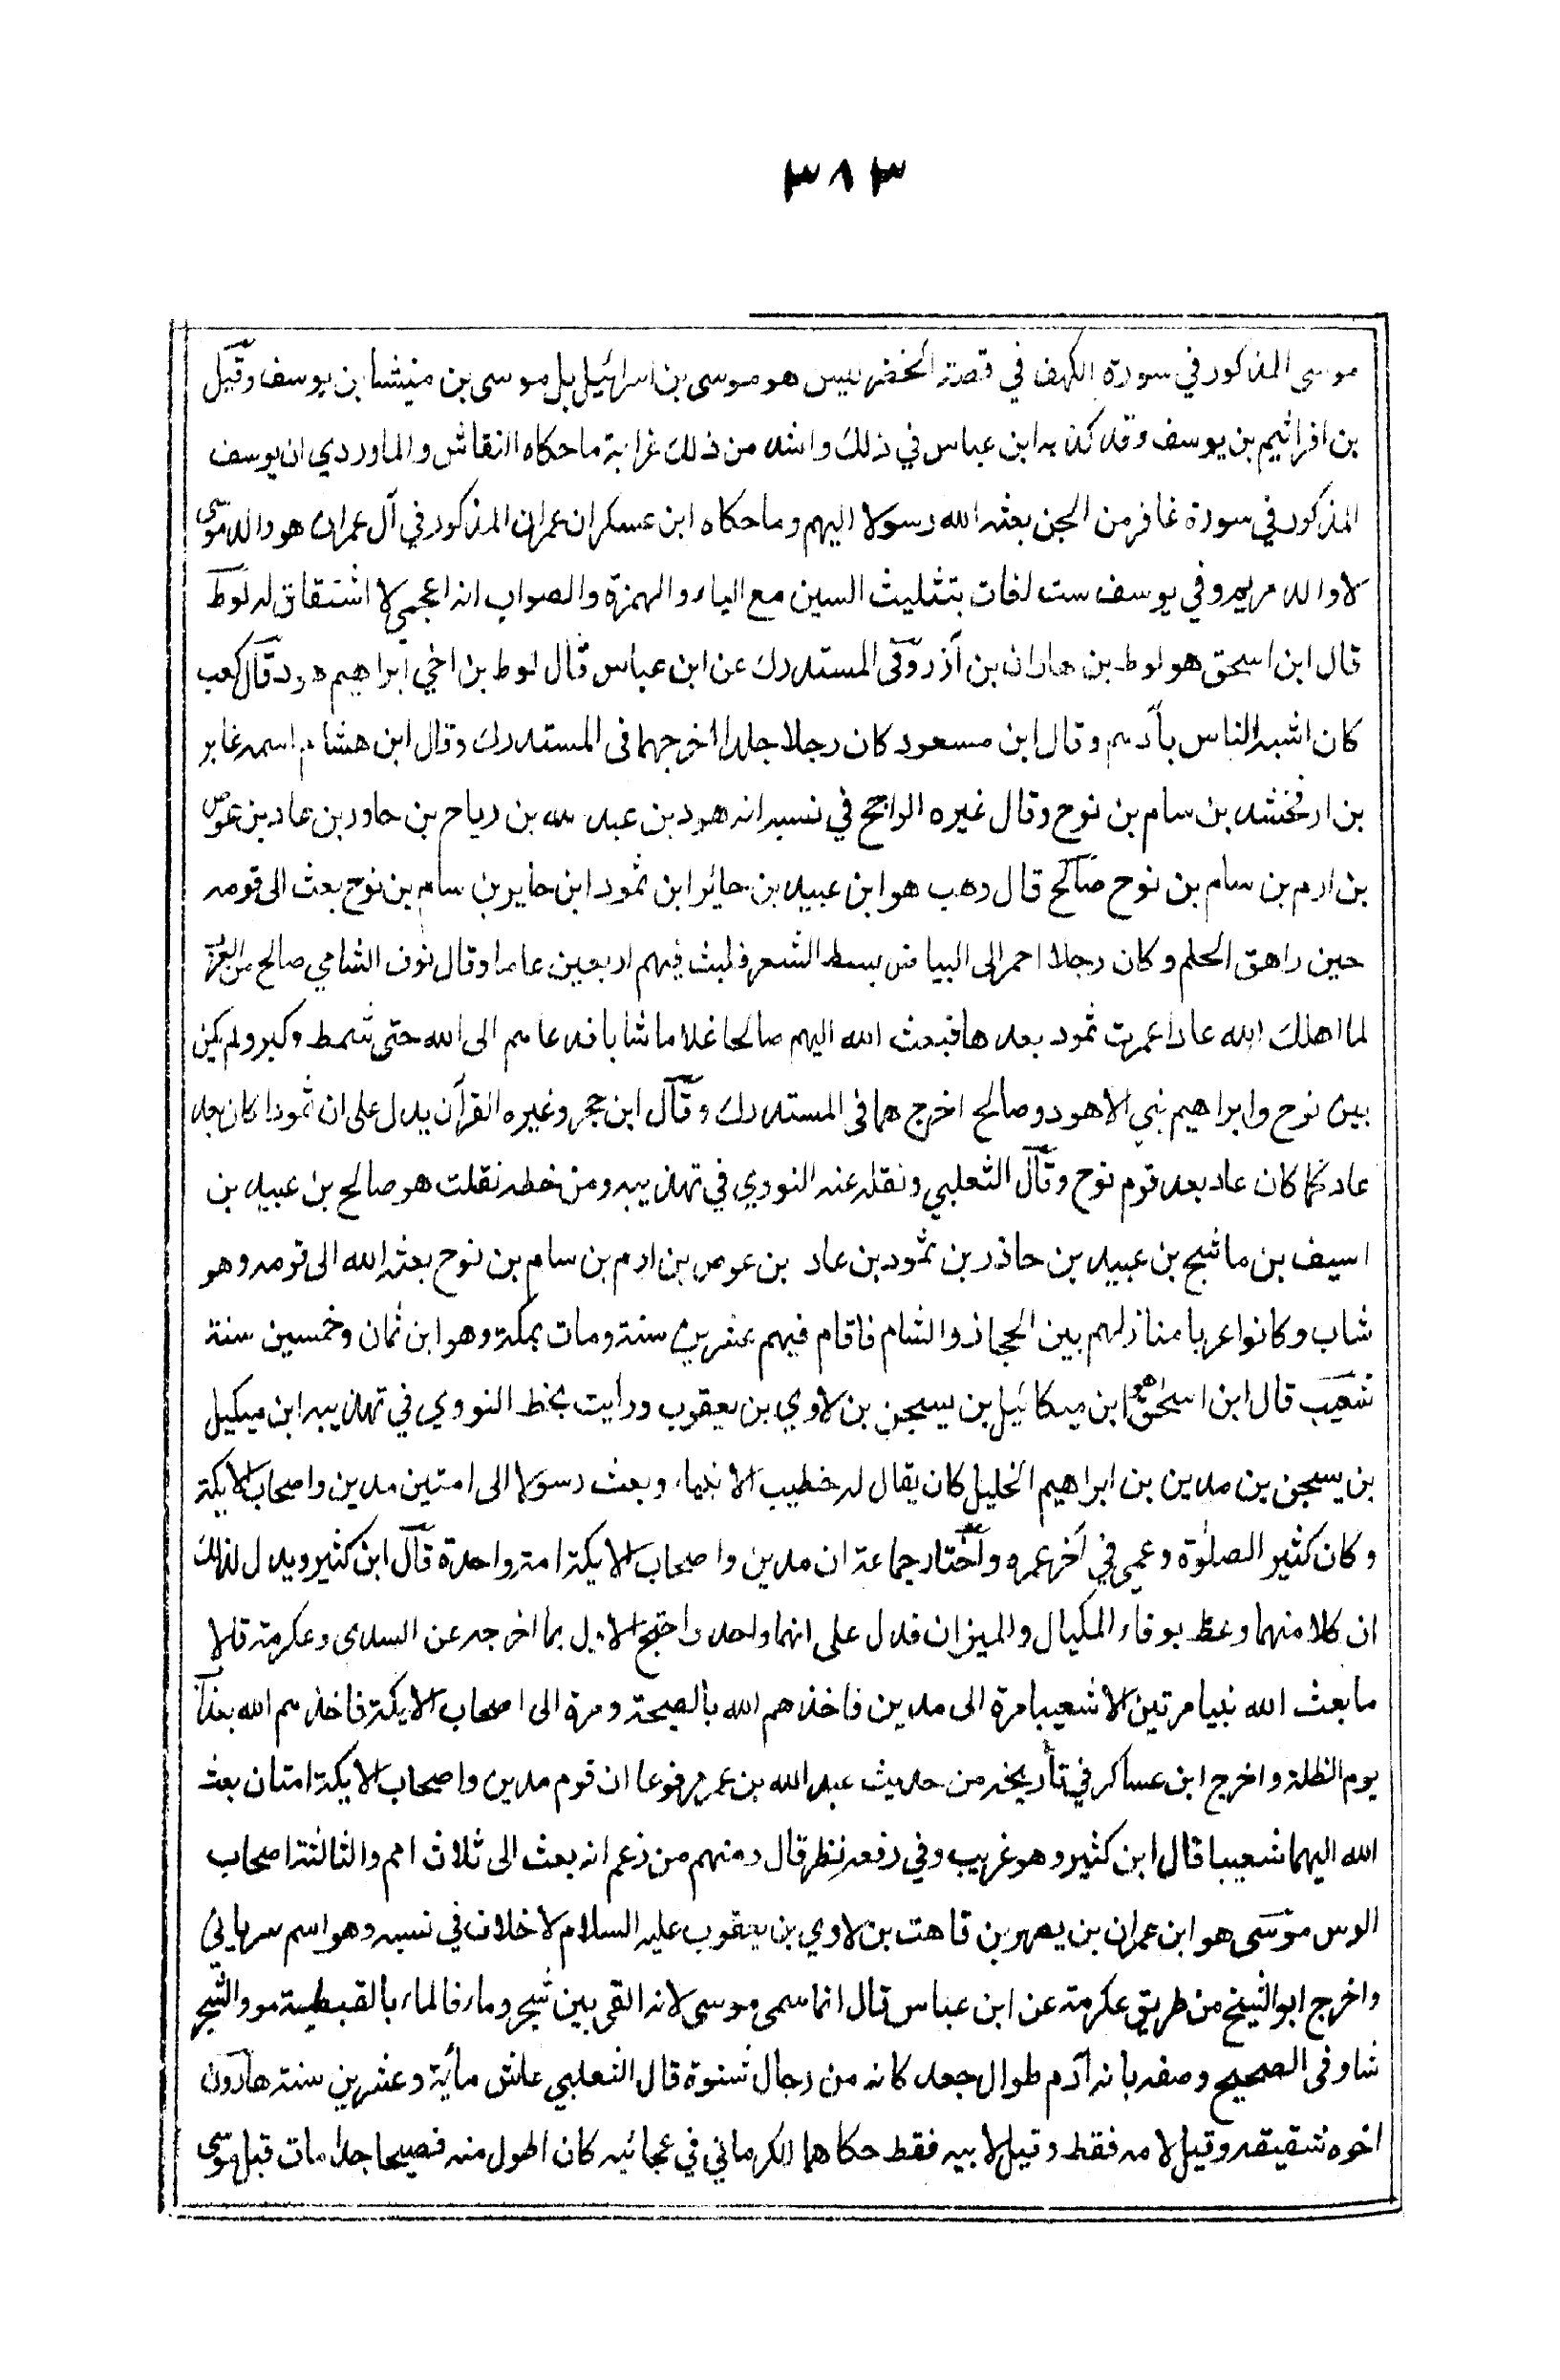 ٣٨٣
موسى المذكور في سورة الكهف في قصة الخضر ليس هو موسى بن اسرائيل بل موسى بن منيشا بن يوسف وقيل
بن افراثيم بن يوسف وقد كذبه ابن عباس في ذلك واشد من ذلك غرابة ما حكاه النقاش والماوردي ان يوسف
المذكور في سورة غافر من الجن بعثه الله رسولا اليهم وما حكاه ابن عسكر ان عمران المذكور في آل عمران هو والد موسى
لا والد مريم وفي يوسف ست لغات بتثليث السين مع الياء والهمزة والصواب انه اعجمي لا اشتقاق له لوط
قال ابن اسحق هو لوط بن هاران بن آزر وفى المستدرك عن ابن عباس قال لوط بن اخي ابراهيم هود قال كعب
كان اشبه الناس بآدم وقال ابن مسعود كان رجلا جلدا اخرجهما فى المستدرك وقال ابن هشام اسمه عابر
بن ارفخشد بن سام بن نوح وقال غيره الراجح في نسبه انه هود بن عبد الله بن رباح بن حاور بن عاد بن عوص
بن ارم بن سام بن نوح صالح قال وهب هو ابن عبيد بن حائر ابن ثمود ابن حاير بن سام بن نوح بعث الى قومه
حين راهق الحلم وكان رجلا احمر الى البياض سبط الشعر فلبث فيهم اربعين عاما وقال نوف الشامي صالح من العرب
لما اهلك الله عادا عمرت ثمود بعدها فبعث الله اليهم صالحا غلاما شابا فدعاهم الى الله حتى شمط وكبر ولم يكن
بين نوح وابراهيم نبي الا هود وصالح اخرجهما فى المستدرك وقال ابن حجر وغيره القرآن يدل على ان ثمودا كان بعد
عاد كما كان عاد بعد قوم نوح وقال الثعلبي ونقله عنه النووي في تهذيبه ومن خطه نقلت هو صالح بن عبيد بن
اسيف بن ماشج بن عبيد بن حاذر بن ثمود بن عاد بن عوص بن ارم بن سام بن نوح بعثه الله الى قومه وهو
شاب وكانوا عربا منازلهم بين الحجاز والشام فاقام فيهم عشرين سنة ومات بمكة وهو ابن ثمان وخمسين سنة
شعيب قال ابن اسحق هو ابن ميكائيل بن يسجن بن لاوي بن يعقوب ورأيت بخط النووي في تهذيبه ابن ميكيل
بن يسجن بن مدين بن ابراهيم الخليل كان يقال له خطيب الانبياء وبعث رسولا الى امتين مدين واصحاب الايكة
وكان كثير الصلوة وعمي في آخر عمره واختار جماعة ان مدين واصحاب الايكة امة واحدة قال ابن كثير ويدل لذلك
ان كلا منهما وعظ بوفاء المكيال والميزان فدل على انهما واحد واحتج الاول بما اخرجه عن السدى وعكرمة قالا
ما بعث الله نبيا مرتين الا شعيبا مرة الى مدين فاخذهم الله بالصيحة ومرة الى اصحاب الايكة فاخذهم الله بعذاب
يوم الظلة واخرج ابن عساكر في تأريخه من حديث عبد الله بن عمر مرفوعا ان قوم مدين واصحاب الايكة امتان بعث
الله اليهما شعيبا قال ابن كثير وهو غريب وفي رفعه نظر قال ومنهم من زعم انه بعث الى ثلاث امم والثالثة اصحاب
الرس موسى هو ابن عمران بن يصهر بن قاهت بن لاوي بن يعقوب عليه السلام لا خلاف في نسبه وهو اسم سرياني
واخرج ابو الشيخ من طريق عكرمة عن ابن عباس قال انما سمى موسى لانه القى بين شجر وماء فالماء بالقبطية مو والشجر
شا وفى الصحيح وصفه بانه آدم طوال جعد كانه من رجال شنوة قال الثعلبي عاش مأية وعشرين سنة هارون
اخوه شقيقه وقيل لامه فقط وقيل لابيه فقط حكاهما الكرماني في عجائبه كان اطول منه فصيحا جدا مات قبل موسى